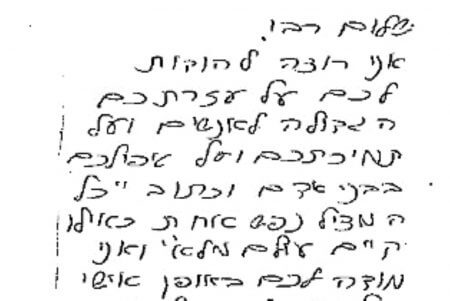 שלום רבי.
אני רוצה להודות
לכם על עזרתכם
הגדולה לאנשים ועל
תמיכתכם ועל טיפולכם
בבני אדם וכתוב "כל
המציל נפש אחת כאילו
קיים עולם מלא" ואני
מודה לכם באופן אישי